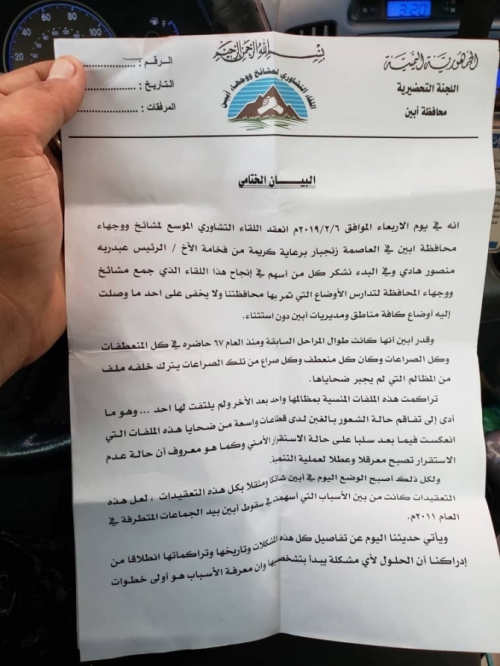 بسم الله الرحمن الرحيم
الجمهورية اليمنية
اللجنة التحضيرية
محافظة أبين
الرقم :
التاريخ :
المرفقات :
اللقاء التشاوري لمشائخ ووجهاء أبين
البيان الختامي
انه في يوم الاربعاء الموافق ٢٠١٩/٢/٦م انعقد اللقاء التشاوري الموسع لمشائخ ووجهاء
محافظة ابين في العاصمة زنجبار برعاية كريمة من فخامة الأخ / الرئيس عبدربه
منصور هادي وفي البدء نشكر كل من أسهم في إنجاح هذا اللقاء الذي جمع مشائخ
ووجهاء المحافظة لتدارس الأوضاع التي تمر بها محافظتنا ولا يخفى على احد ما وصلت
إليه أوضاع كافة مناطق ومديريات أبين دون استثناء.
وقدر أبين أنها كانت طوال المراحل السابقة ومنذ العام ٦٧ حاضره في كل المنعطفات
وكل الصراعات وكان كل منعطف وكل صراع من تلك الصراعات يترك خلفه ملف
من المظالم التي لم يجبر ضحاياها.
تراكمت هذه الملفات المنسية بمظالمها واحد بعد الأخر ولم يلتفت لها احد ... وهو ما
أدى إلى تفاقم حالة الشعور بالغبن لدى قطاعات واسعة من ضحايا هذه الملفات التي
انعكست فيما بعد سلبا على حالة الاستقرار الأمني وكما هو معروف أن حالة عدم
الاستقرار تصبح معرقلا وعطلا لعملية التنمية.
ولكل ذلك أصبح الوضع اليوم في أبين شائكا ومثقلا بكل هذه التعقيدات ، لعل هذه
التعقيدات كانت من بين الأسباب التي أسهمت في سقوط أبين بيد الجماعات المتطرفة في
العام ٢٠١١م.
ويأتي حديثنا اليوم عن تفاصيل كل هذه المشكلات وتاريخها وتراكماتها انطلاقا من
إدراكنا أن الحلول لأي مشكلة يبدأ بتشخيصها وان معرفة الأسباب هو أولى خطوات